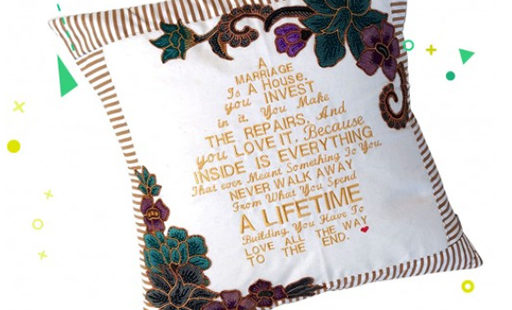 A
MARRIAGE
Is A House.
you INVEST
in it. You Make
THE REPAIRS, And
you LOVE IT. Because
INSIDE IS EVERYTHING
That ever Meant Something To You
NEVER WALK AWAY
From What You Spend
A LIFETIME
Building You Have To
LOVE ALL THE WAY
TO THE END.